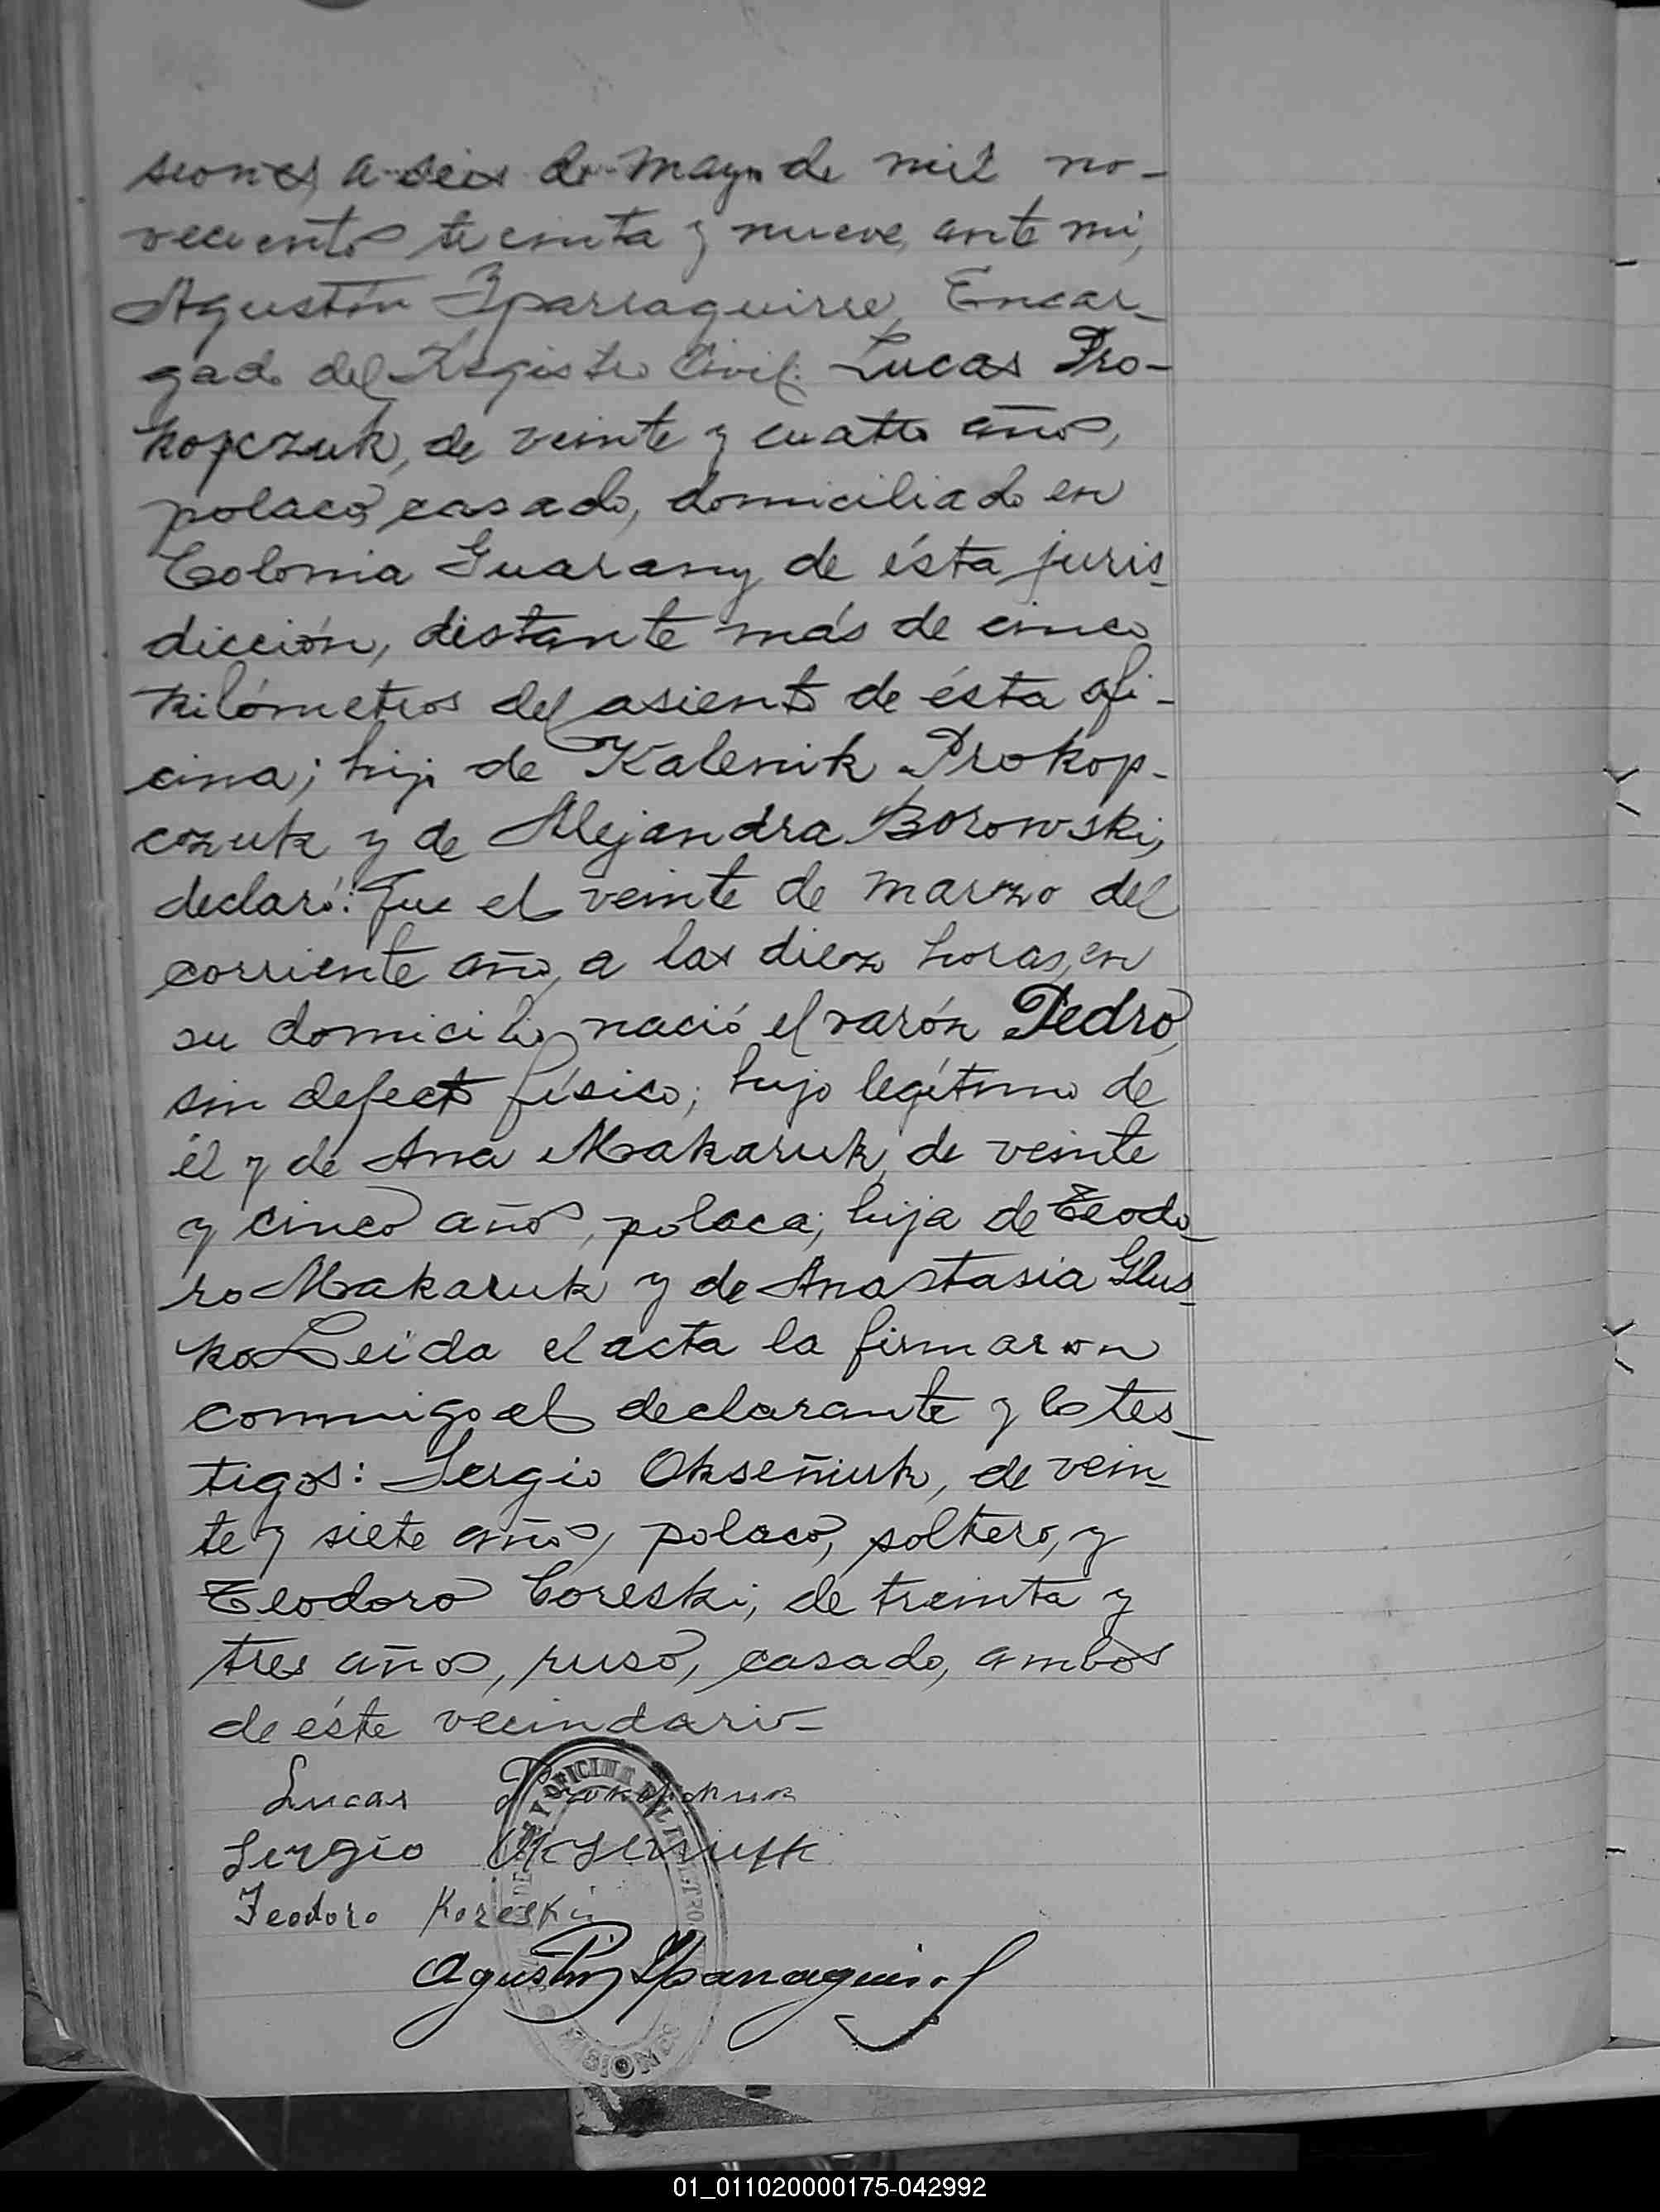 siones, a seis de Mayo de mil no-
vecientos treinta y nueve, ante mi,
Agustín Iparraguirre, Encar-
gado del Registro Civil: Lucas Pro-
kopczuk, de veinte y cuatro años,
polaco, casado, domiciliado en
Colonia Guarany de ésta juris-
dicción, distante más de cinco
kilómetros del asiento de ésta ofi-
cina; hijo de Kalenik Prokop-
czuk y de Alejandra Borowski,
declaró: Que el veinte de marzo del
corriente año, a las diez horas, en
su domicilio, nació el varón Pedro,
sin defecto físico; hijo legítimo de
él y de Ana Makaruk, de veinte
y cinco años, polaca; hija de Teodo-
ro Makaruk y de Anastasia Glus-
ko. Leída el acta la firmaron
conmigo el declarante y los tes-
tigos: Sergio Okseñiuk, de vein-
te y siete años, polaco, soltero, y
Teodoro Coreski, de treinta y
tres años, ruso, casado, ambos
de éste vecindario-
Lucas
Sergio Okseniuk
Teodoro Koreski
Agustín Iparraguirre
OFICINA DEL
MISIONES
01_011020000175-042992